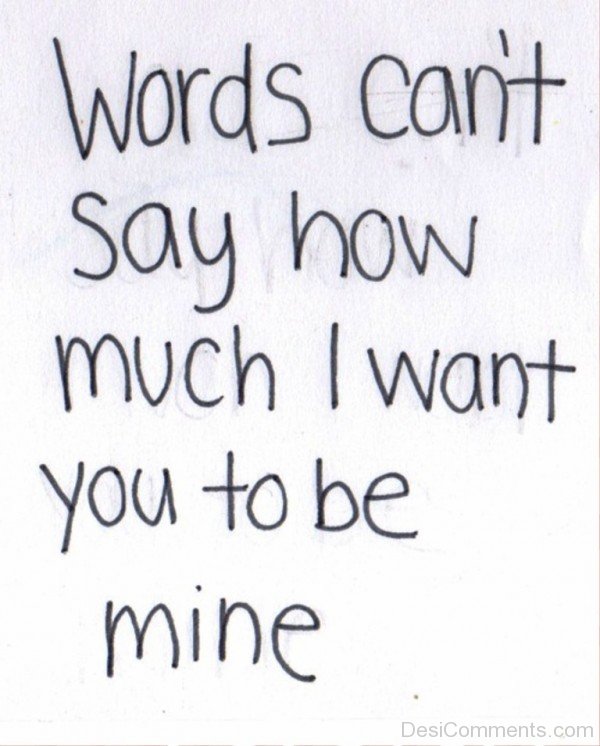 Words can't
say how
much I want
you to be
mine
DesiComments.com